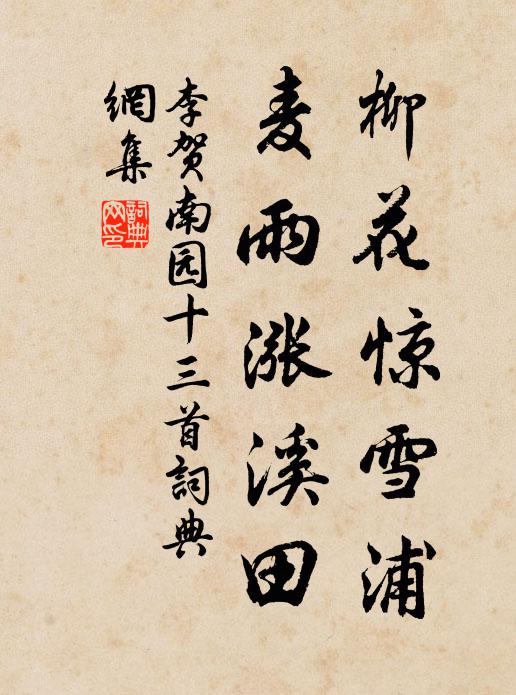 柳花惊雪浦
麦雨涨溪田
李贺南园十三首詞典
網集
詞典
网印